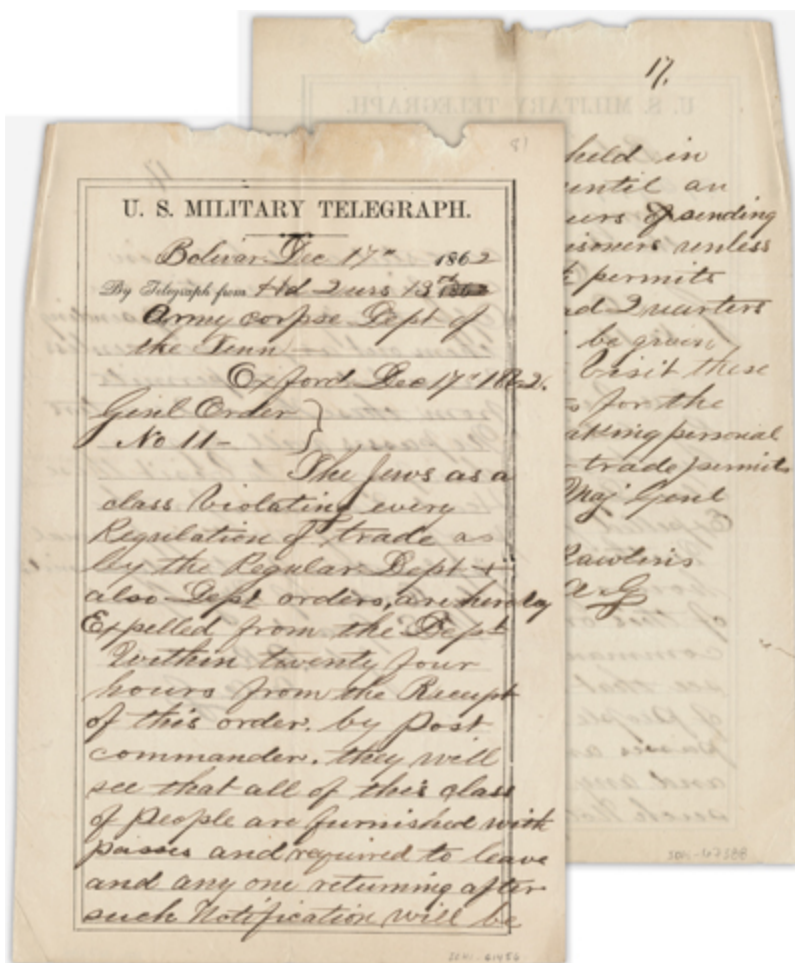 81
U. S. MILITARY TELEGRAPH.
Bolivar Dec 17th 1862
By Telegraph from Hd 2urs 13th 1862
Army corpse Dept of
the Tenn —
Oxford Dec 17th 1862.
Genl Order
No 11 —
The Jews as a
class Violating every
Regulation of trade as
by the Regular Dept +
also Dept orders, are hereby
Expelled from the Dept
Within twenty four
hours from the Receipt
of this order. by Post
commander. they will
see that all of this class
of People are furnished with
passes and required to leave
and any one returning after
such Notification will be
17.
held in
until an
urs of sending
isoners unless
permits
d 2uarters
be given
Visit these
s for the
aking personal
trade permits
Maj Genl
Rawlins
A. G